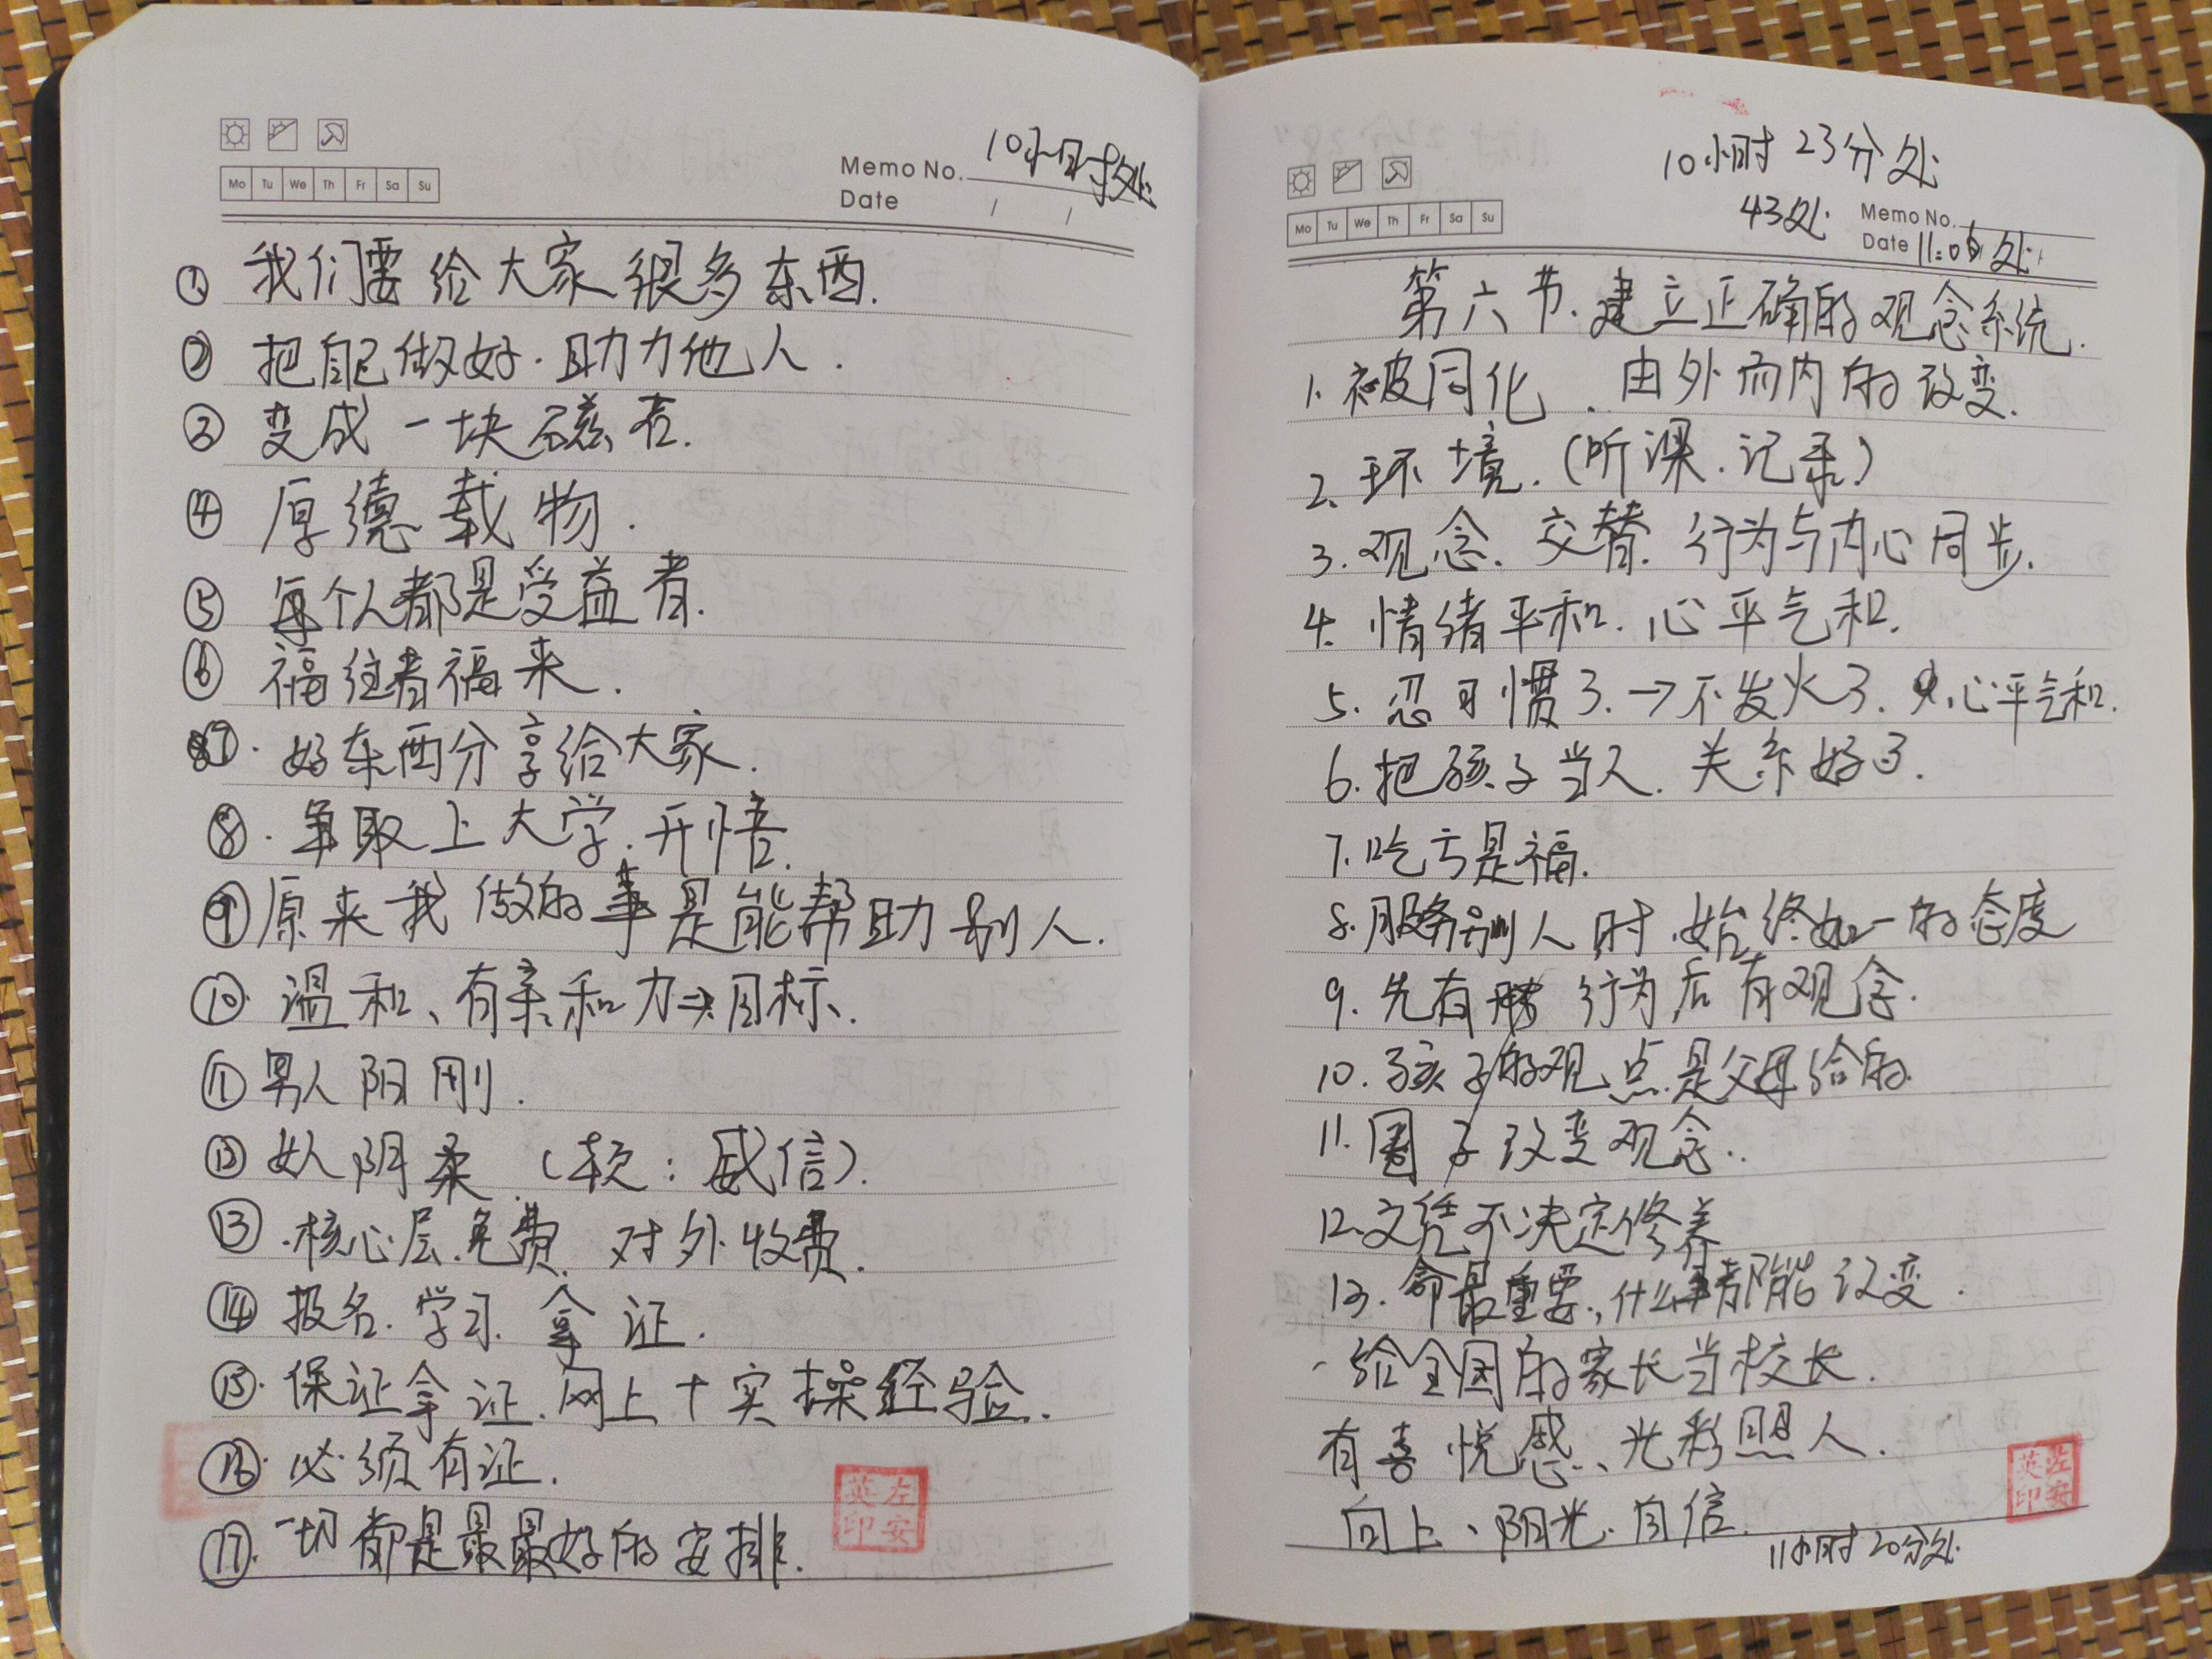 Mo Tu We Th Fr Sa Su
Memo No. 10小时处
Date / /
① 我们要给大家很多东西.
② 把自己做好.助力他人.
③ 变成一块磁石.
④ 厚德载物.
⑤ 每个人都是受益者.
⑥ 福往者福来.
⑦. 好东西分享给大家.
⑧. 争取上大学.开悟.
⑨ 原来我做的事是能帮助别人.
⑩. 温和、有亲和力→目标.
⑪ 男人阳刚.
⑫ 女人阴柔.(软:威信).
⑬ .核心层.免费.对外收费.
⑭ 报名.学习.拿证.
⑮. 保证拿证.网上+实操经验.
⑯. 必须有证.
⑰. 一切都是最最好的安排.
英左
印安
10小时23分处
43处
Mo Tu We Th Fr Sa Su
Memo No.
Date 11:06处
第六节.建立正确的观念系统.
1.被同化.由外而内的改变.
2.环境.(听课.记录)
3.观念.交替.行为与内心同步.
4.情绪平和.心平气和.
5.忍习惯了.→不发火了.心平气和.
6.把孩子当人.关系好了.
7.吃亏是福.
8.服务别人时.始终如一的态度
9.先有行为后有观念.
10.孩子的观点是父母给的.
11.圈子改变观念..
12.文凭不决定修养
13.命最重要,什么事都能改变.
、给全国的家长当校长.
有喜悦感、光彩照人.
向上、阳光.自信.
11小时20分处.
英左
印安